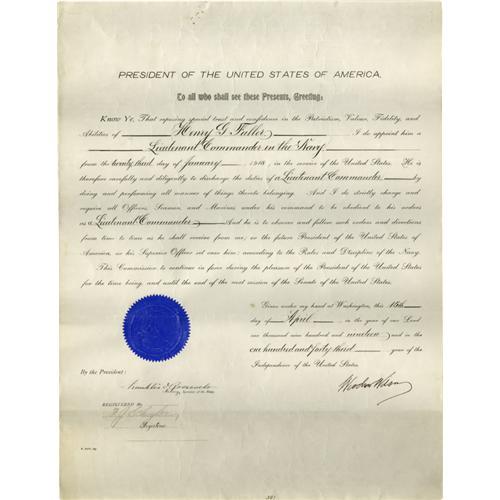 PRESIDENT OF THE UNITED STATES OF AMERICA.
To all who shall see these Presents, Greeting:
Know Ye, That reposing special trust and confidence in the Patriotism, Valour, Fidelity, and
Abilities of Henry G Fuller I do appoint him a
Lieutenant Commander in the Navy
from the twenty third day of January 1918, in the service of the United States. He is
therefore carefully and diligently to discharge the duties of a Lieutenant Commander by
doing and performing all manner of things thereto belonging. And I do strictly charge and
require all Officers, Seamen and Marines under his command to be obedient to his orders
as a Lieutenant Commander And he is to observe and follow such orders and directions
from time to time as he shall receive from me, or the future President of the United States of
America, or his Superior Officer set over him, according to the Rules and Discipline of the Navy.
This Commission to continue in force during the pleasure of the President of the United States
for the time being, and until the end of the next session of the Senate of the United States.
Given under my hand at Washington, this 15th
day of April in the year of our Lord
one thousand nine hundred and nineteen and in the
one hundred and forty third year of the
Independence of the United States.
By the President:
Woodrow Wilson
Franklin D Roosevelt
Acting Secretary of the Navy.
REGISTERED
Register